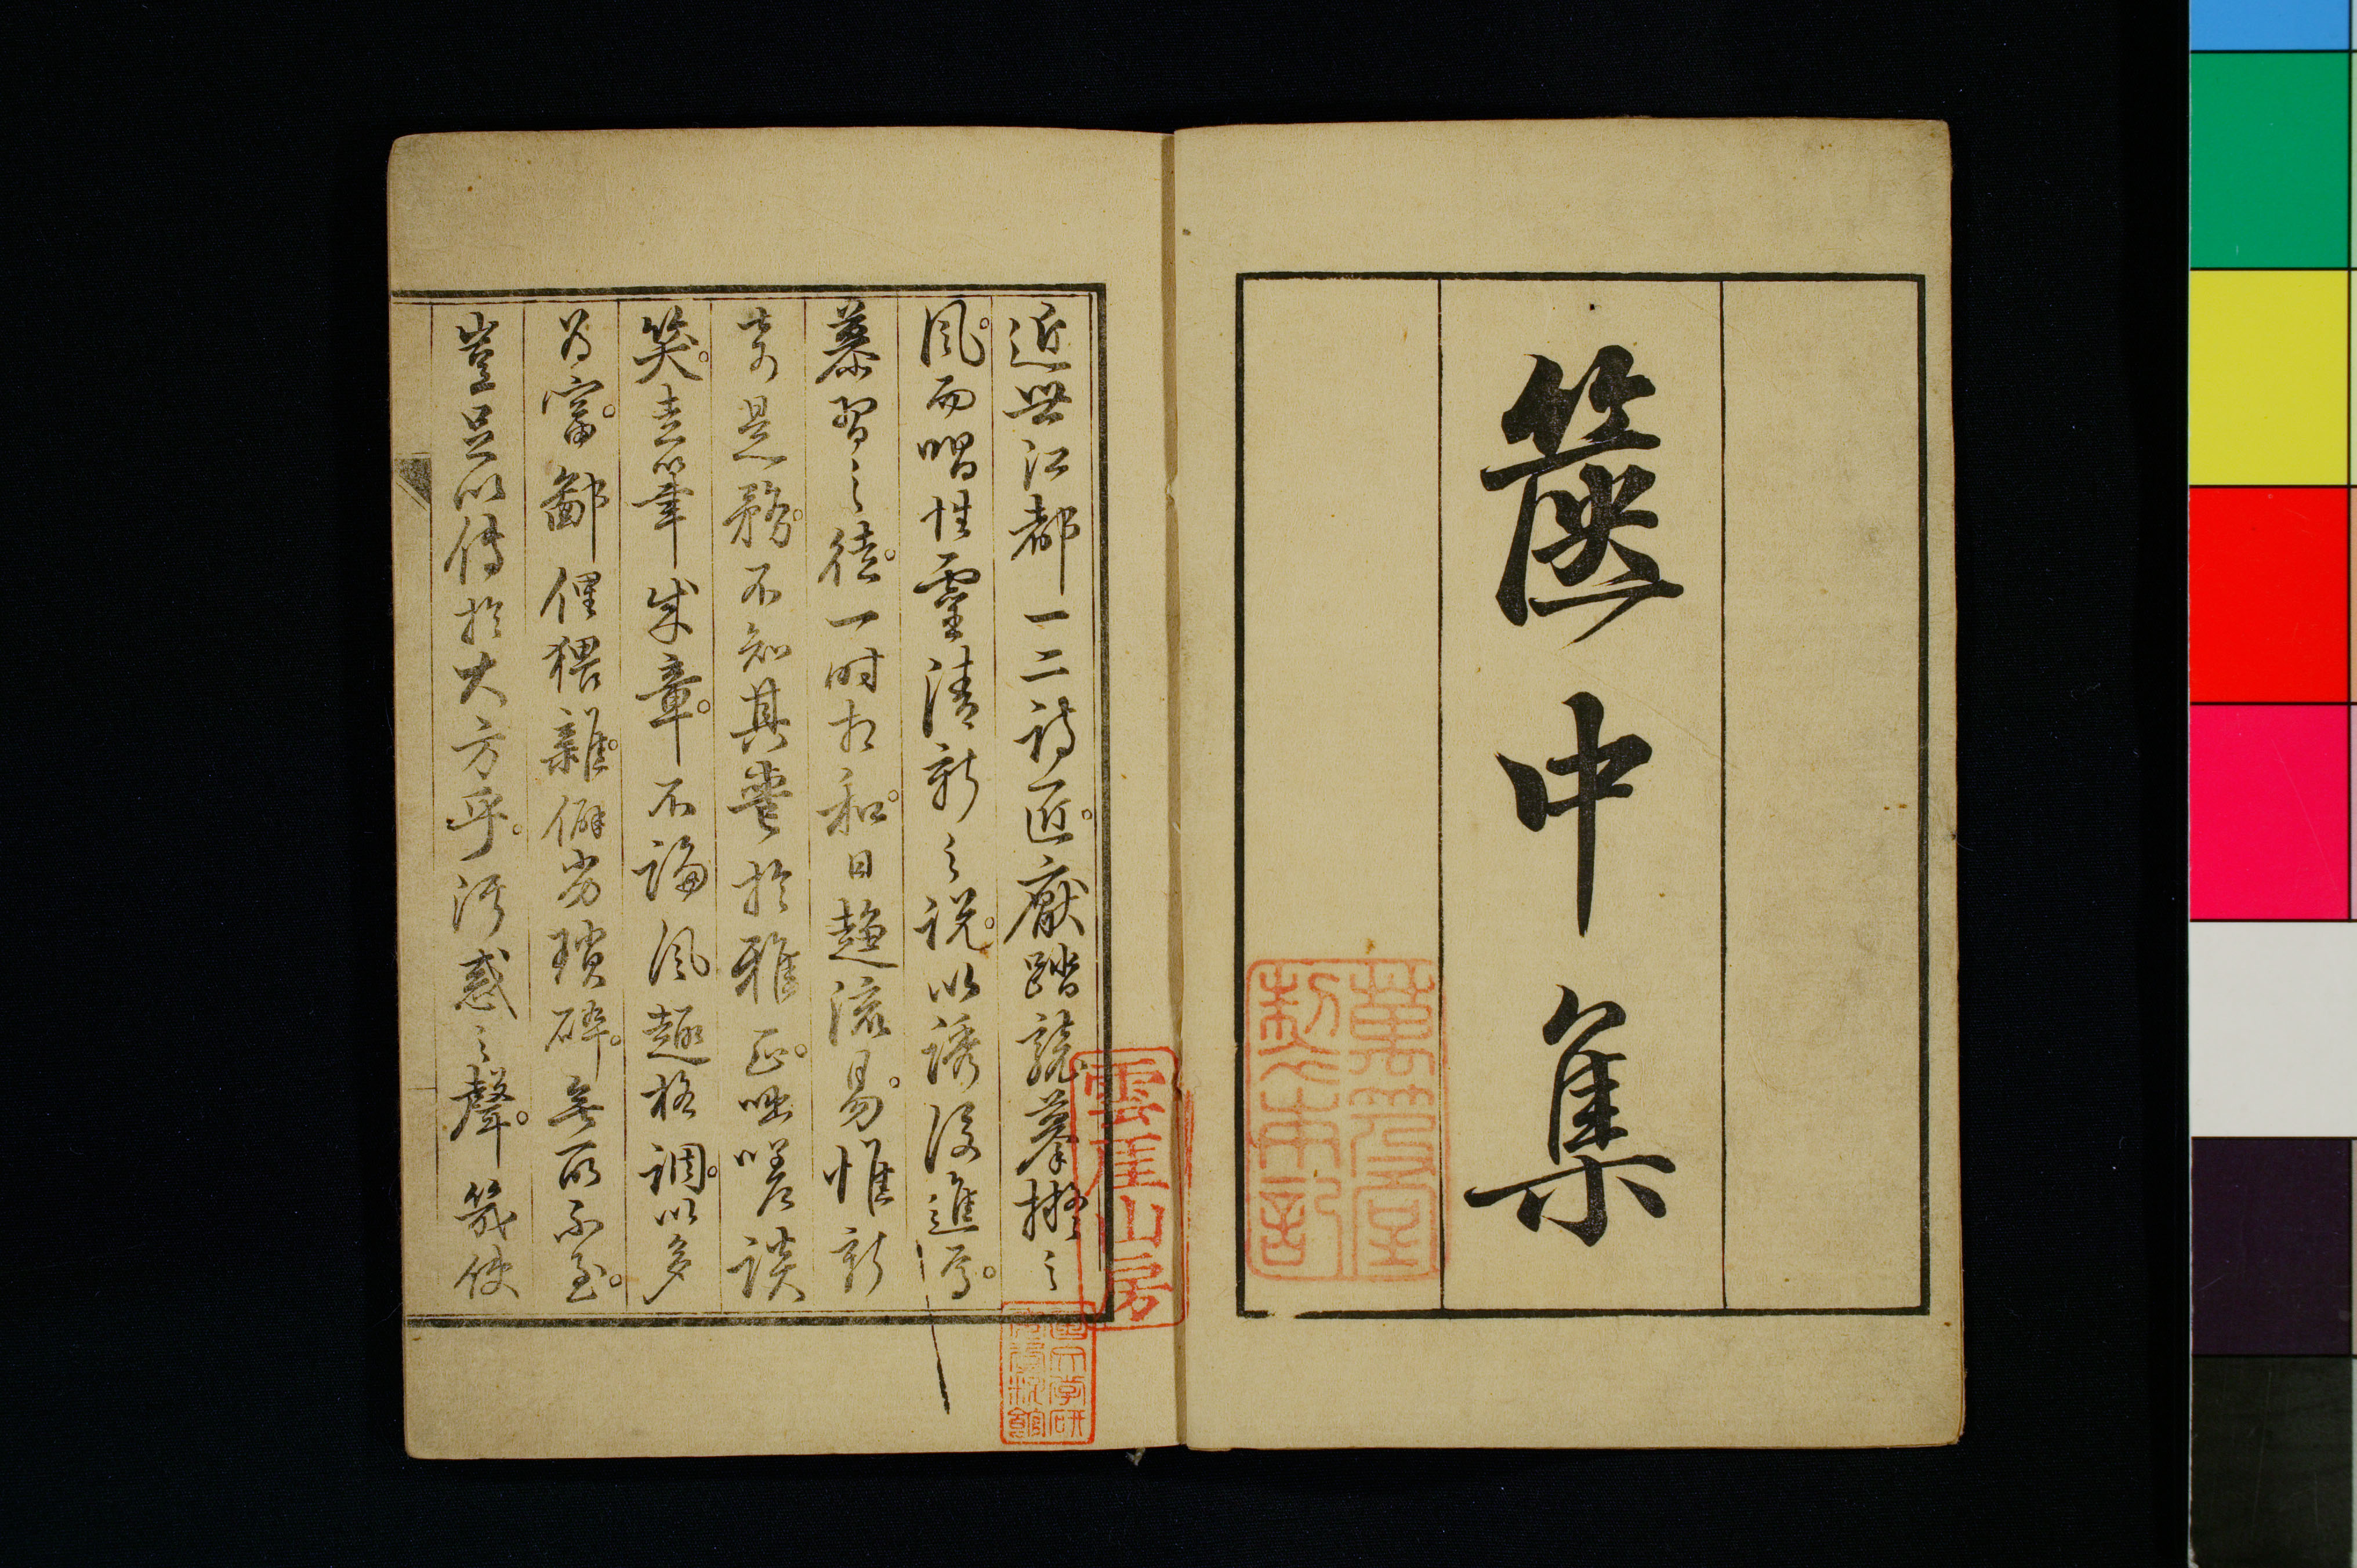 篋中集
近世江都一二詩匠。厭踏襲摹擬之
風。而唱性靈清新之說。以誘後進焉。
慕習之徒。一時相和。日趨流易。惟新
奇是務。不知其乖於雅正。咄嗟談
笑。走筆成章。不論風趣格調。以多
為富。鄙俚猥雜。僻劣瑣碎。無所不至。
豈足以傳於大方乎。 惑之聲。幾使
雲崖山房
国文学研
究資料館